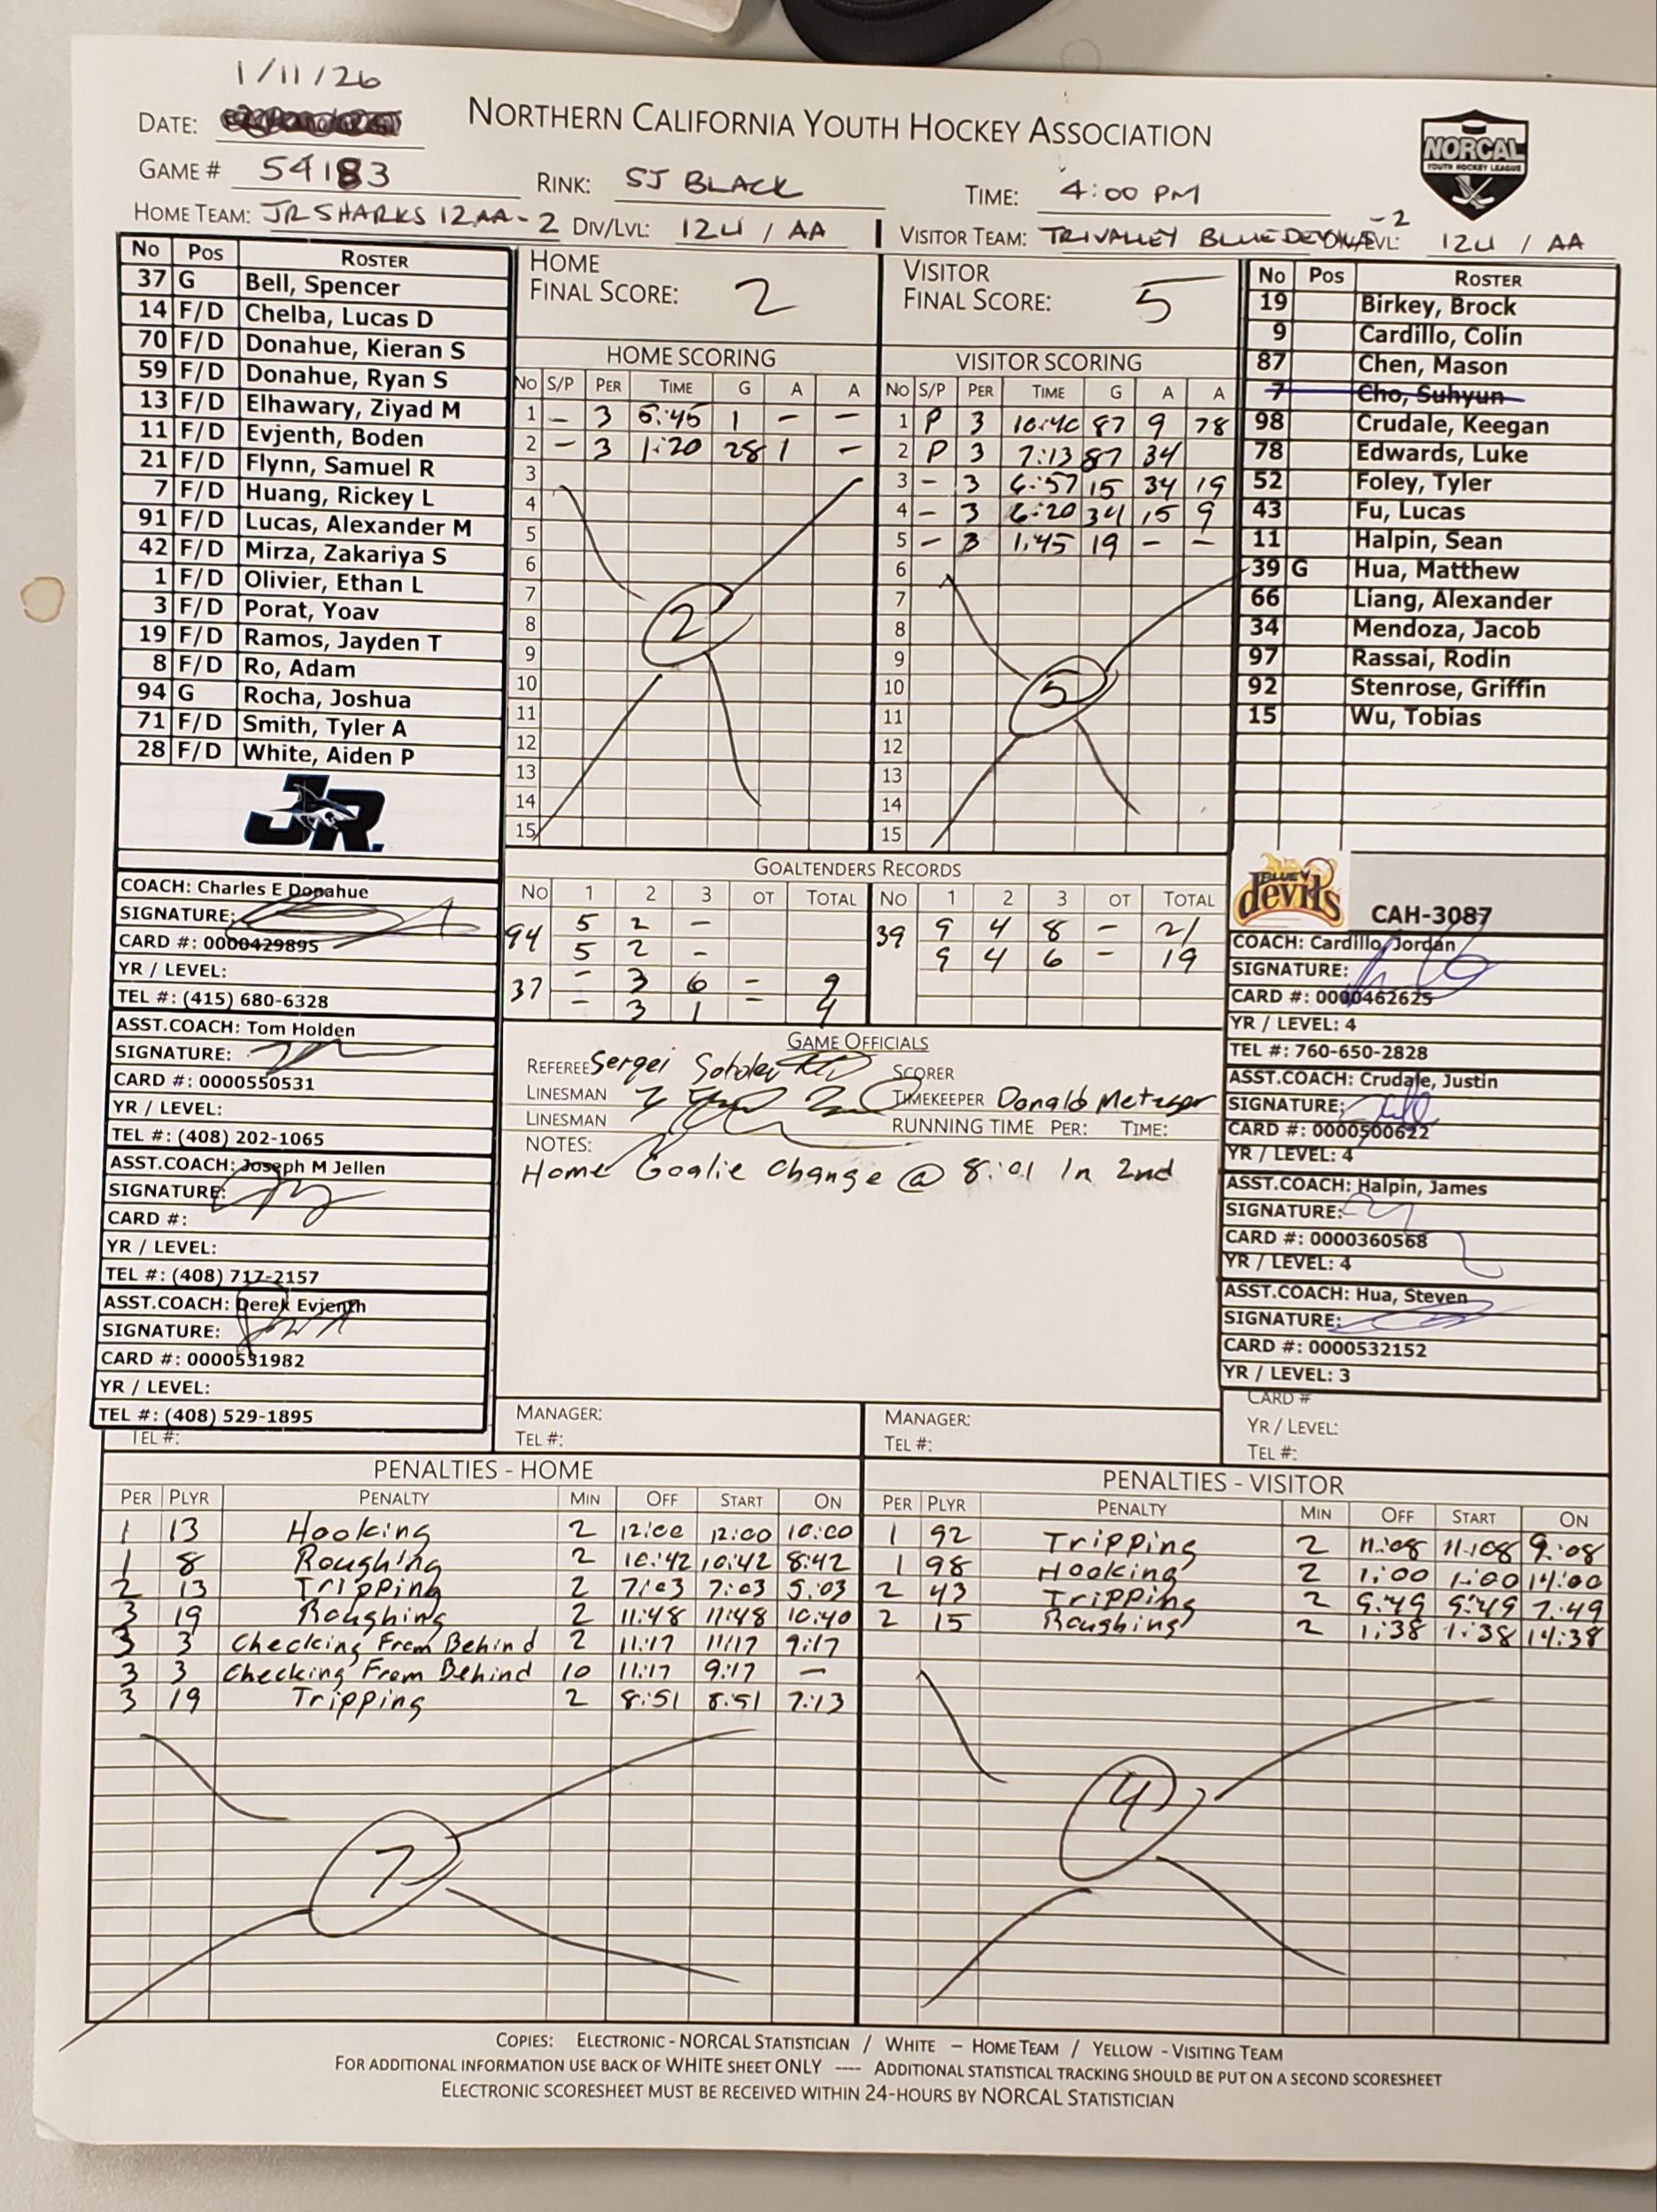 1/11/26
DATE:
NORTHERN CALIFORNIA YOUTH HOCKEY ASSOCIATION
NORCAL
YOUTH HOCKEY LEAGUE
GAME # 54183 RINK: SJ BLACK TIME: 4:00 PM
HOME TEAM: JR SHARKS 12AA-2 DIV/LVL: 12U / AA VISITOR TEAM: TRIVALLEY BLUE DEVILS -2 DIV/LVL: 12U / AA
No Pos ROSTER
37 G Bell, Spencer
14 F/D Chelba, Lucas D
70 F/D Donahue, Kieran S
59 F/D Donahue, Ryan S
13 F/D Elhawary, Ziyad M
11 F/D Evjenth, Boden
21 F/D Flynn, Samuel R
7 F/D Huang, Rickey L
91 F/D Lucas, Alexander M
42 F/D Mirza, Zakariya S
1 F/D Olivier, Ethan L
3 F/D Porat, Yoav
19 F/D Ramos, Jayden T
8 F/D Ro, Adam
94 G Rocha, Joshua
71 F/D Smith, Tyler A
28 F/D White, Aiden P
JR.
COACH: Charles E Donahue
SIGNATURE:
CARD #: 0000429895
YR / LEVEL:
TEL #: (415) 680-6328
ASST.COACH: Tom Holden
SIGNATURE:
CARD #: 0000550531
YR / LEVEL:
TEL #: (408) 202-1065
ASST.COACH: Joseph M Jellen
SIGNATURE:
CARD #:
YR / LEVEL:
TEL #: (408) 717-2157
ASST.COACH: Derek Evjenth
SIGNATURE:
CARD #: 0000531982
YR / LEVEL:
TEL #: (408) 529-1895
TEL #:
HOME
FINAL SCORE: 2
HOME SCORING
No S/P PER TIME G A A
1 - 3 6:45 1 - -
2 - 3 1:20 28 1 -
3
4
5
6
7
8 2
9
10
11
12
13
14
15
VISITOR
FINAL SCORE: 5
VISITOR SCORING
No S/P PER TIME G A A
1 P 3 10:40 87 9 78
2 P 3 7:13 87 34
3 - 3 6:57 15 34 19
4 - 3 6:20 34 15 9
5 - 3 1:45 19 - -
6
7
8
9
10 5
11
12
13
14
15
No Pos ROSTER
19 Birkey, Brock
9 Cardillo, Colin
87 Chen, Mason
7 Cho, Suhyun
98 Crudale, Keegan
78 Edwards, Luke
52 Foley, Tyler
43 Fu, Lucas
11 Halpin, Sean
39 G Hua, Matthew
66 Liang, Alexander
34 Mendoza, Jacob
97 Rassai, Rodin
92 Stenrose, Griffin
15 Wu, Tobias
BLUE
devils
CAH-3087
COACH: Cardillo, Jordan
SIGNATURE:
CARD #: 0000462625
YR / LEVEL: 4
TEL #: 760-650-2828
ASST.COACH: Crudale, Justin
SIGNATURE:
CARD #: 0000500622
YR / LEVEL: 4
ASST.COACH: Halpin, James
SIGNATURE:
CARD #: 0000360568
YR / LEVEL: 4
ASST.COACH: Hua, Steven
SIGNATURE:
CARD #: 0000532152
YR / LEVEL: 3
CARD #
YR / LEVEL:
TEL #:
GOALTENDERS RECORDS
No 1 2 3 OT TOTAL No 1 2 3 OT TOTAL
94 5 2 - 39 9 4 8 - 21
5 2 - 9 4 6 - 19
37 - 3 6 - 9
- 3 1 - 4
GAME OFFICIALS
REFEREE Sergei SCORER
LINESMAN TIMEKEEPER Donald Metzger
LINESMAN RUNNING TIME PER: TIME:
NOTES:
Home Goalie Change @ 8:01 In 2nd
MANAGER: MANAGER:
TEL #: TEL #:
PENALTIES - HOME
PER PLYR PENALTY MIN OFF START ON
1 13 Hooking 2 12:00 12:00 10:00
1 8 Roughing 2 10:42 10:42 8:42
2 13 Tripping 2 7:03 7:03 5:03
3 19 Roughing 2 11:48 11:48 10:40
3 3 Checking From Behind 2 11:17 11:17 9:17
3 3 Checking From Behind 10 11:17 9:17 -
3 19 Tripping 2 8:51 8:51 7:13
7
PENALTIES - VISITOR
PER PLYR PENALTY MIN OFF START ON
1 92 Tripping 2 11:08 11:08 9:08
1 98 Hooking 2 1:00 1:00 14:00
2 43 Tripping 2 9:49 9:49 7:49
2 15 Roughing 2 1:38 1:38 14:38
4
COPIES: ELECTRONIC - NORCAL STATISTICIAN / WHITE – HOME TEAM / YELLOW - VISITING TEAM
FOR ADDITIONAL INFORMATION USE BACK OF WHITE SHEET ONLY ---- ADDITIONAL STATISTICAL TRACKING SHOULD BE PUT ON A SECOND SCORESHEET
ELECTRONIC SCORESHEET MUST BE RECEIVED WITHIN 24-HOURS BY NORCAL STATISTICIAN